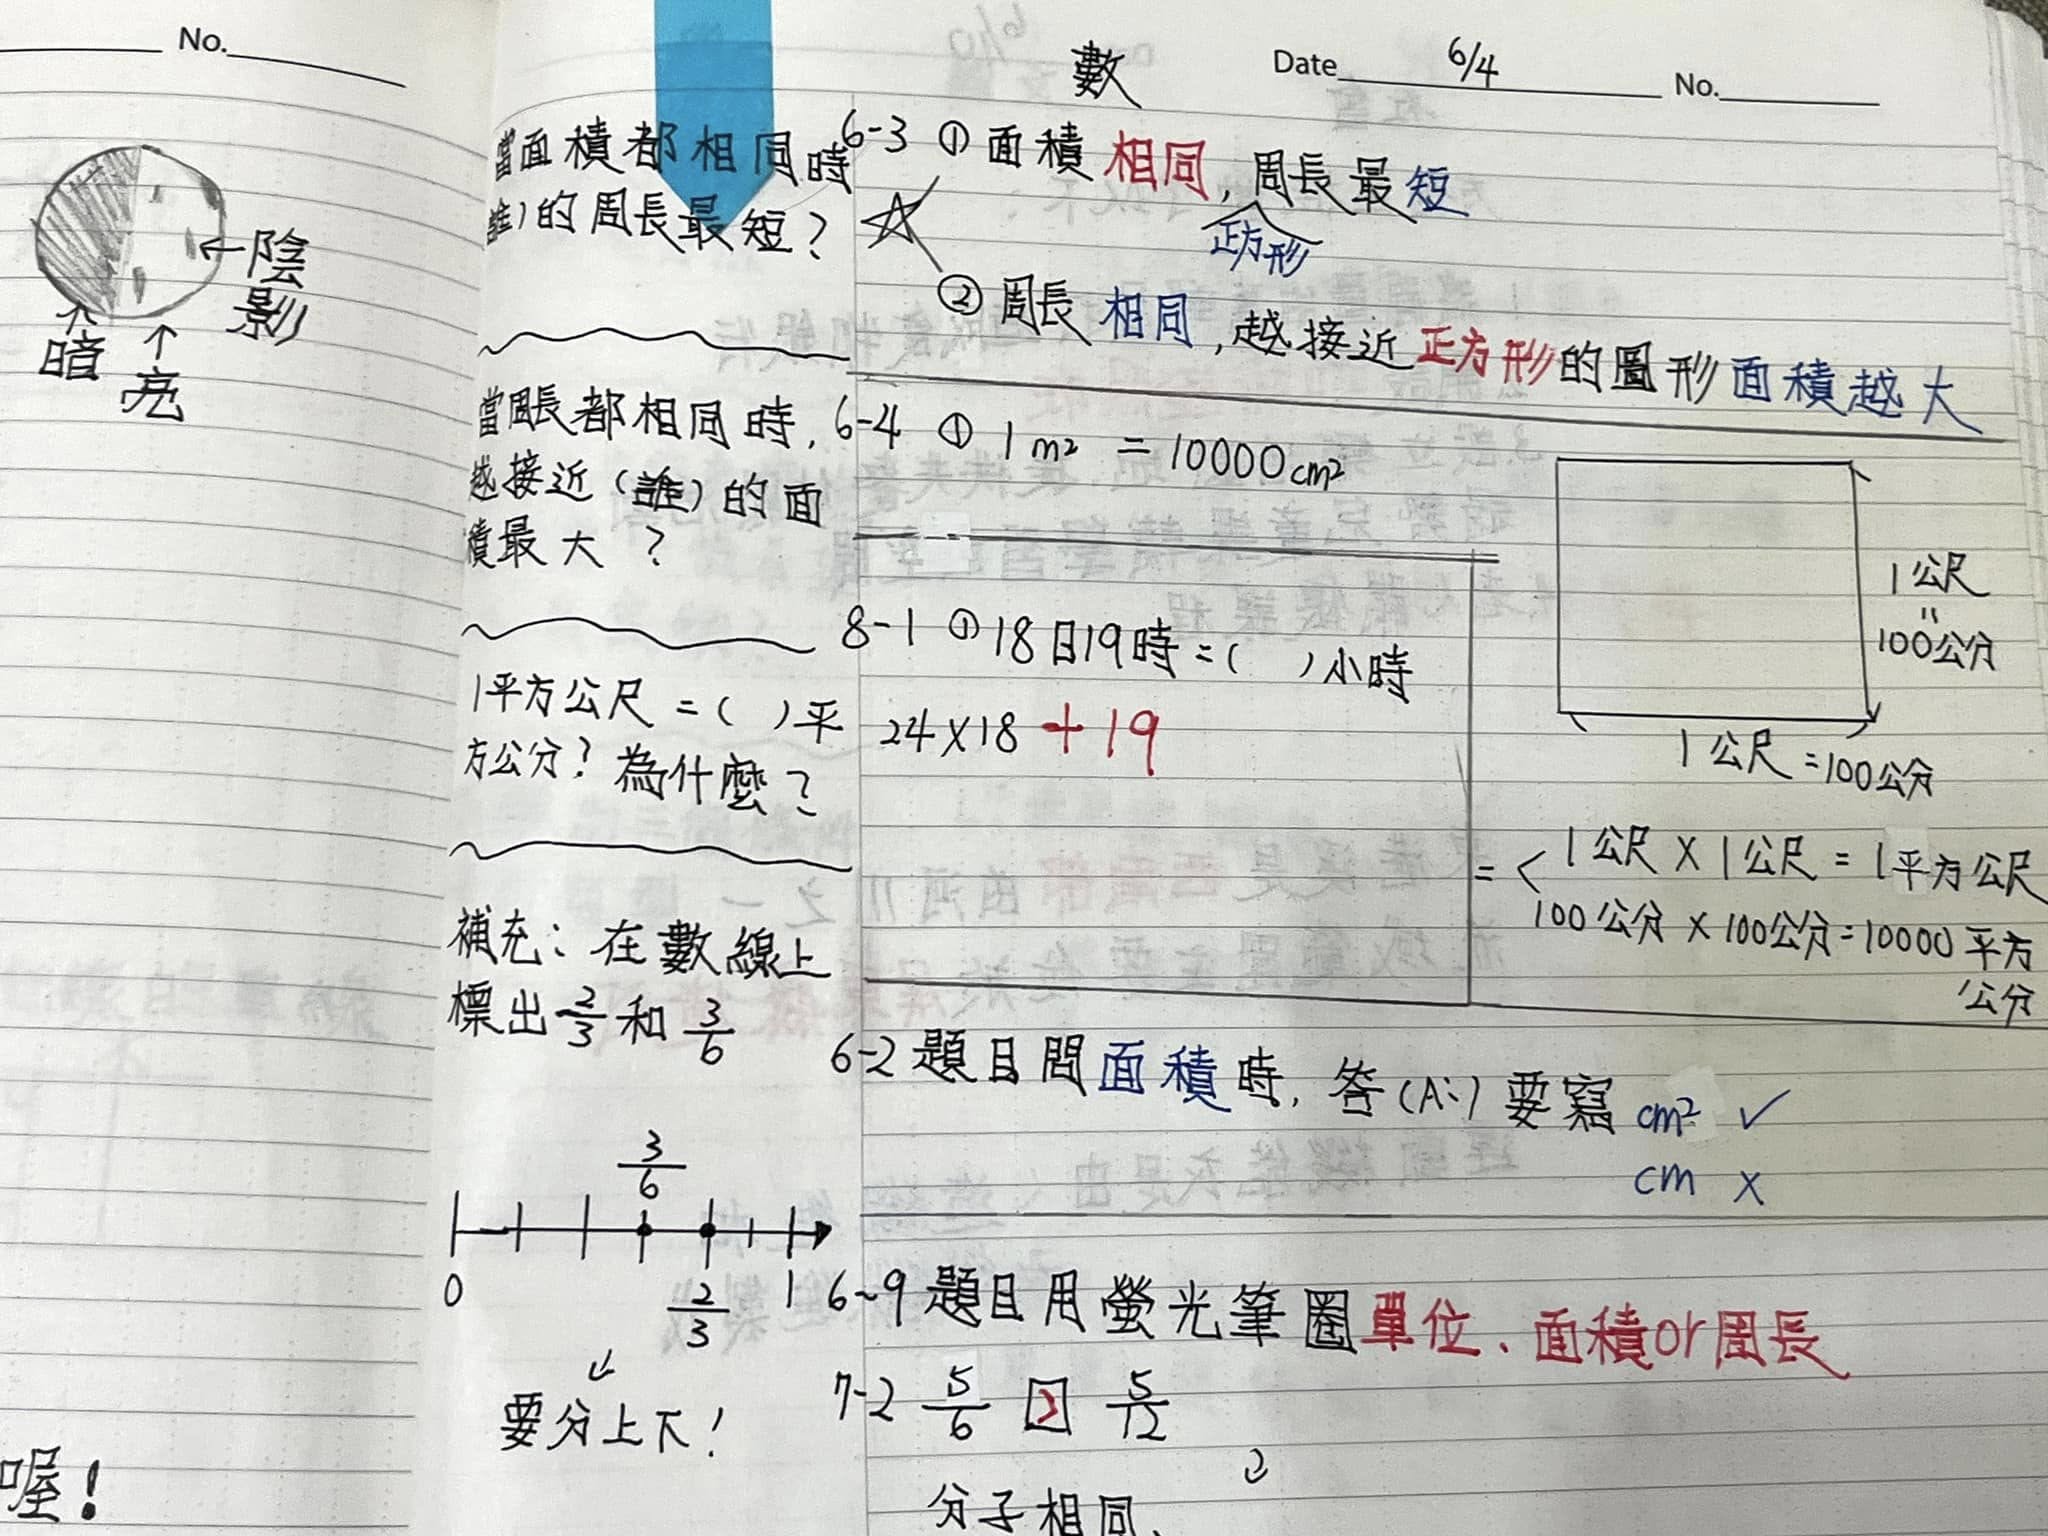 No.
陰
影
暗
亮
喔!
數
Date 6/4 No.
當面積都相同時
(誰)的周長最短?
當周長都相同時,
越接近(誰)的面
積最大?
1平方公尺=( )平
方公分?為什麼?
補充:在數線上
標出2/3和3/6
3/6
0 1
2/3
要分上下!
6-3 ① 面積相同,周長最短
正方形
② 周長相同,越接近正方形的圖形面積越大
6-4 ① 1m² = 10000cm²
1公尺
"
100公分
1公尺=100公分
= < 1公尺×1公尺=1平方公尺
100公分×100公分=10000平方
公分
8-1 ① 18日19時=( )小時
24×18+19
6-2 題目問面積時,答(A:)要寫cm² ✓
cm ×
6-9 題目用螢光筆圈單位、面積or周長
7-2 5/6 > 5/12
分子相同、